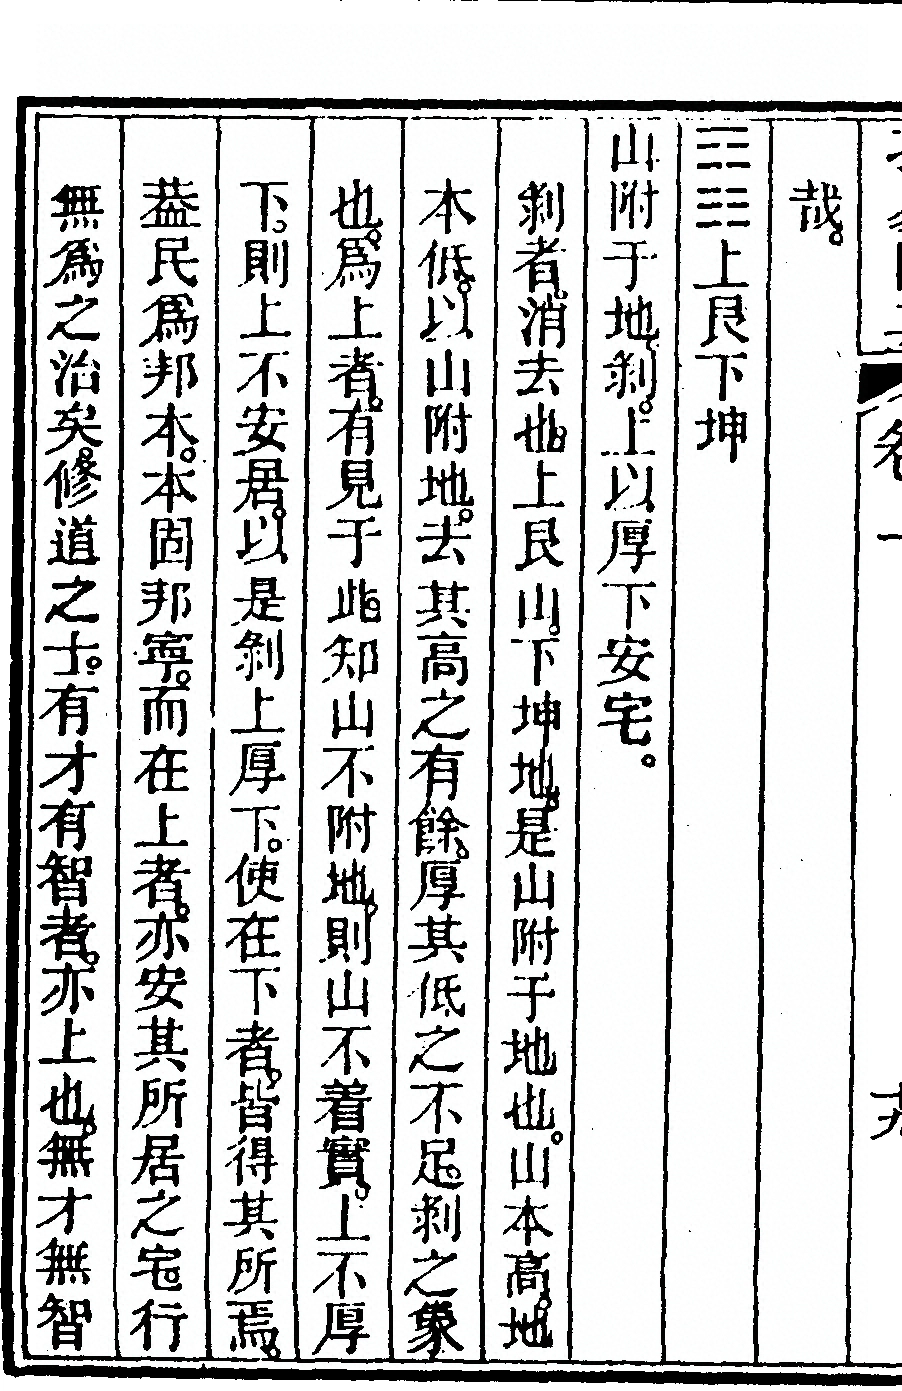 哉。
䷖上艮下坤
山附于地。剝。上以厚下安宅。
剝者。消去也。上艮山。下坤地。是山附于地也。山本高。地
本低。以山附地。去其高之有餘。厚其低之不足。剝之象
也。爲上者。有見于此。知山不附地。則山不着實。上不厚
下。則上不安居。以是剝上厚下。使在下者。皆得其所焉。
葢民爲邦本。本固邦寧。而在上者。亦安其所居之宅。行
無爲之治矣。修道之士。有才有智者。亦上也。無才無智